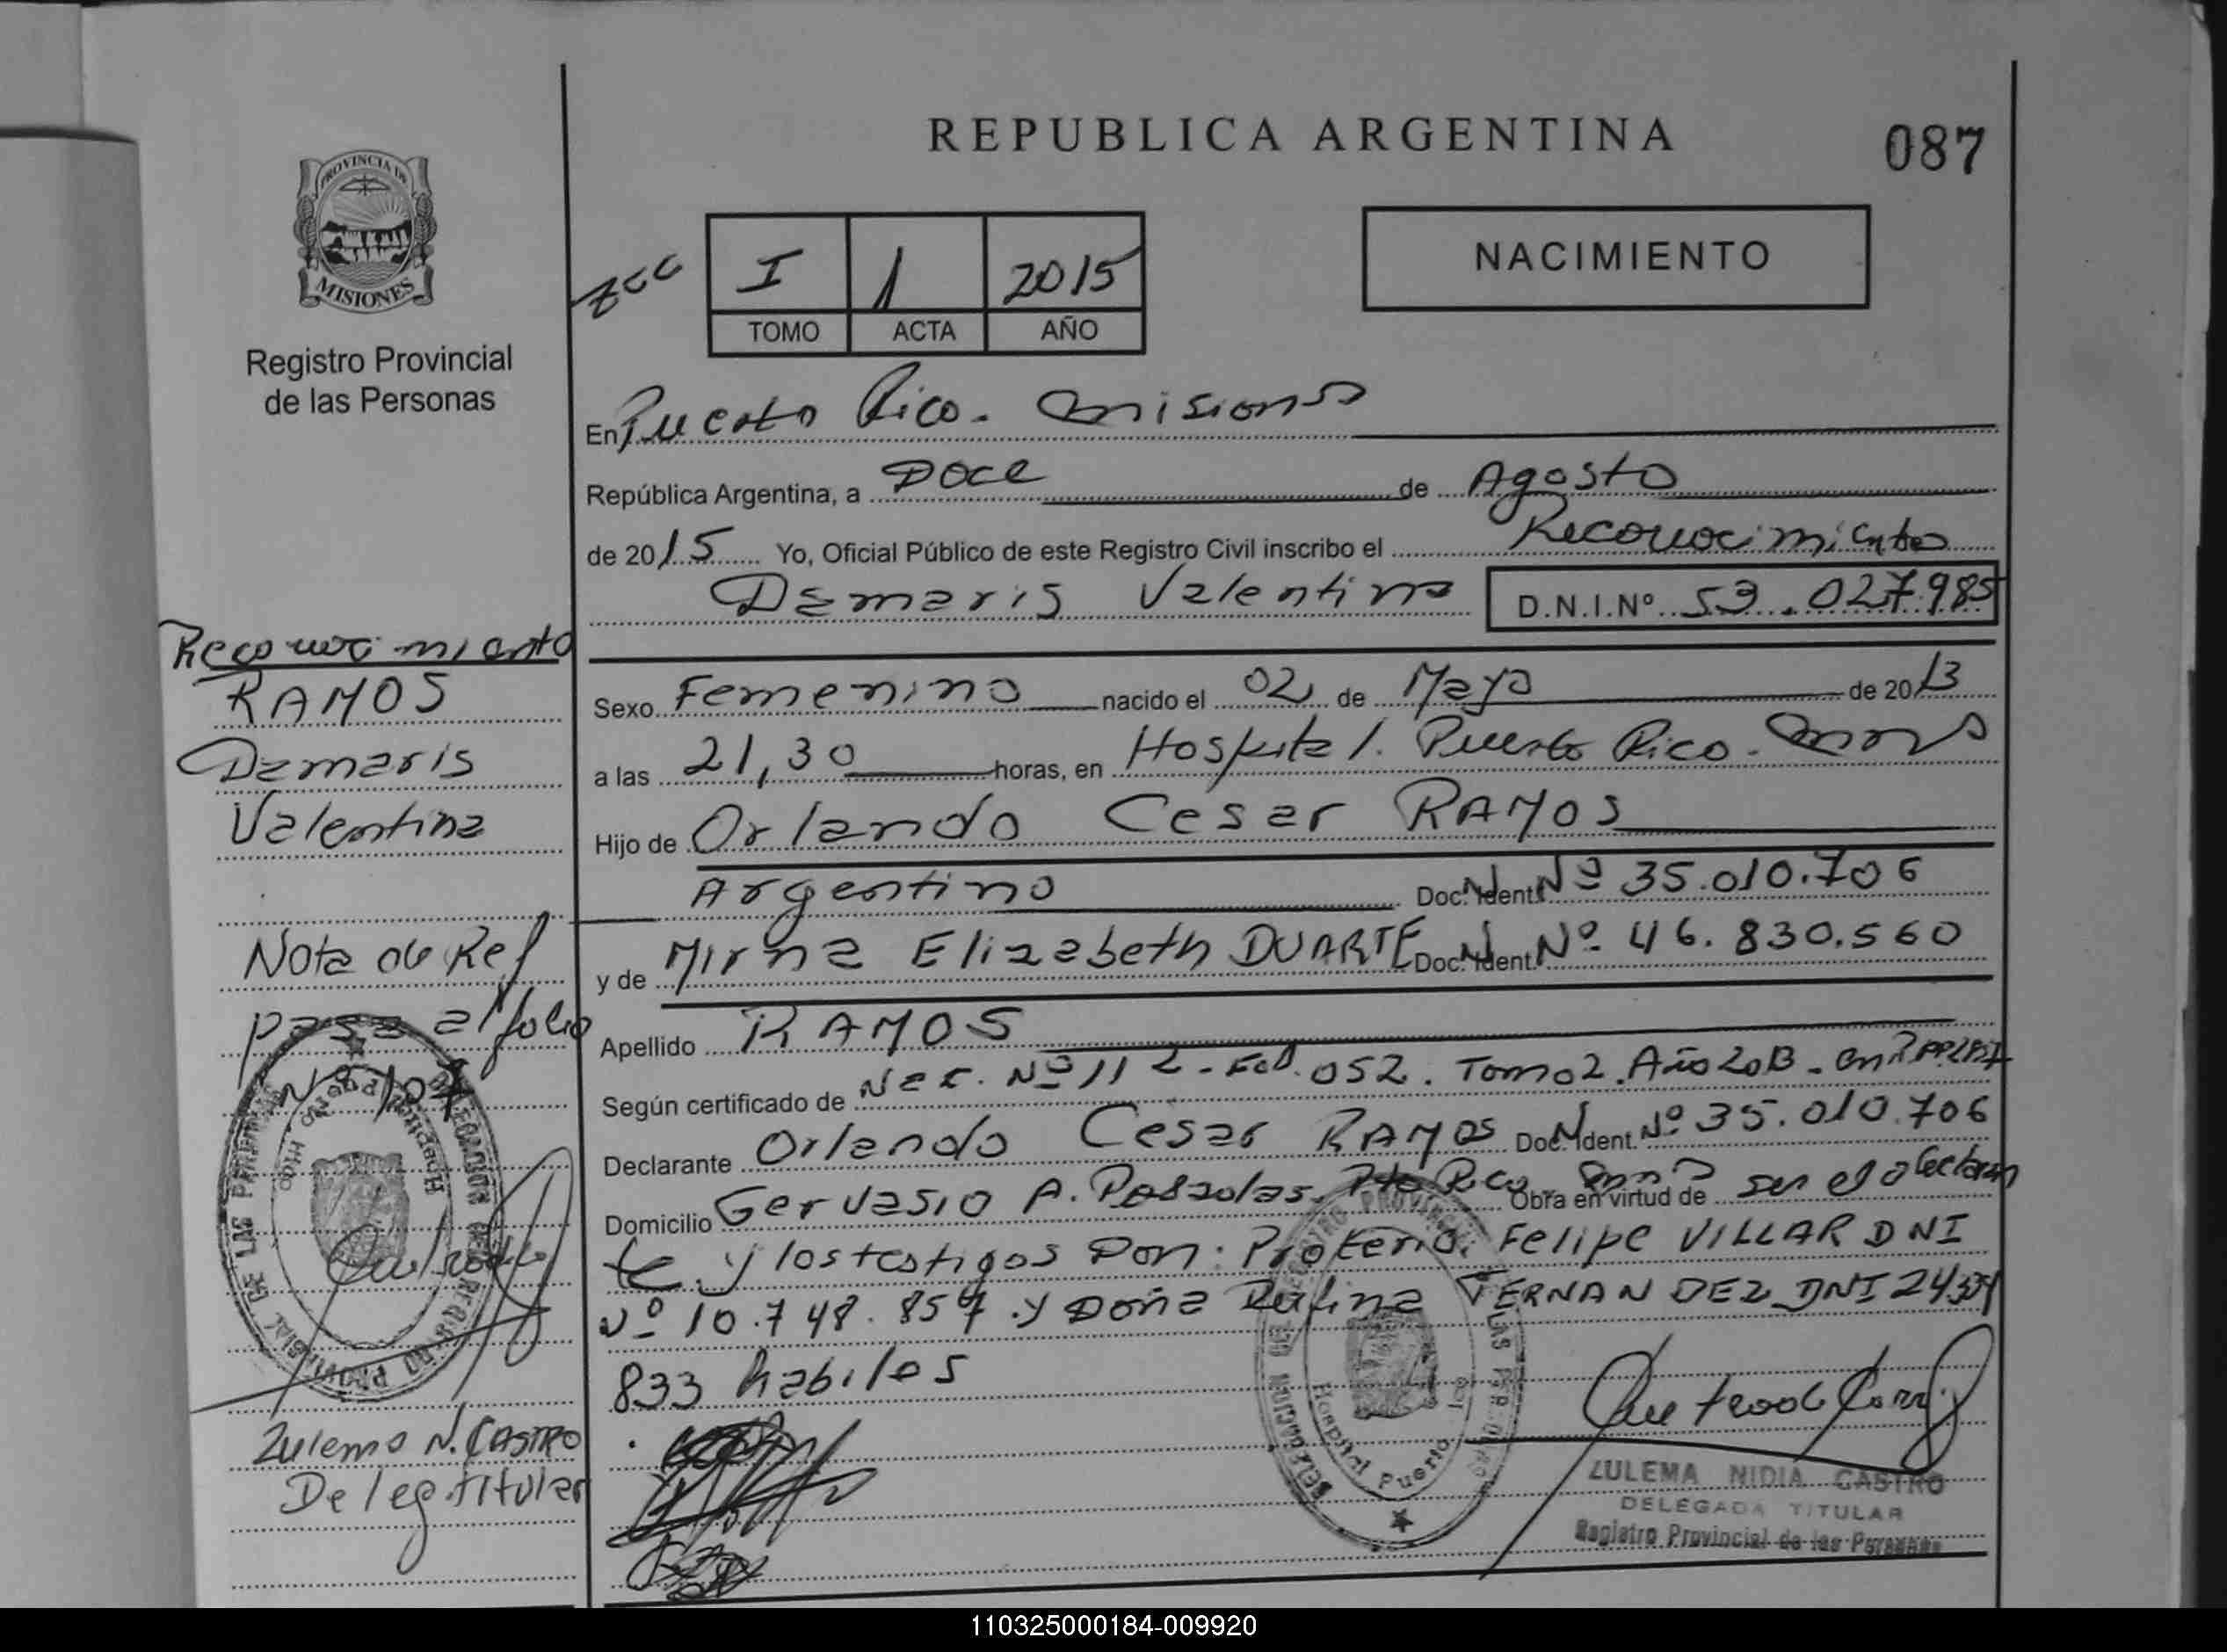 REPUBLICA ARGENTINA
087
PROVINCIA DE
MISIONES
Registro Provincial
de las Personas
I 1 2015
TOMO ACTA AÑO
NACIMIENTO
En Puerto Rico. Misiones
República Argentina, a Doce de Agosto
de 2015 Yo, Oficial Público de este Registro Civil inscribo el Reconocimiento
Damaris Valentina D.N.I.Nº 53.027.985
Sexo Femenino nacido el 02 de Mayo de 2013
a las 21,30 horas, en Hospital. Puerto Rico.
Hijo de Orlando Cesar RAMOS
Argentino Doc. Ident. Nº 35.010.706
y de Mirna Elizabeth DUARTE Doc. Ident. Nº 46.830.560
Apellido RAMOS
Según certificado de Nac. Nº 112 - Fol. 052. Tomo 2. Año 2013 -
Declarante Orlando Cesar RAMOS Doc. Ident. Nº 35.010.706
Domicilio Gervasio A. Posadas. Pto Rico Obra en virtud de ser el declaran
te y los testigos Don: Proterio Felipe VILLAR DNI
Nº 10.748.857 y Doña Rufina FERNANDEZ DNI 24.
833 habiles
Reconocimiento
RAMOS
Damaris
Valentina
Nota de Ref
pasa al folio
Nº 107
Zulema N. CASTRO
Deleg. titular
DELEGACION DEL REGISTRO PROVINCIAL DE LAS PERSONAS
Hospital Puerto Rico
ZULEMA NIDIA CASTRO
DELEGADA TITULAR
Registro Provincial de las Personas
110325000184-009920